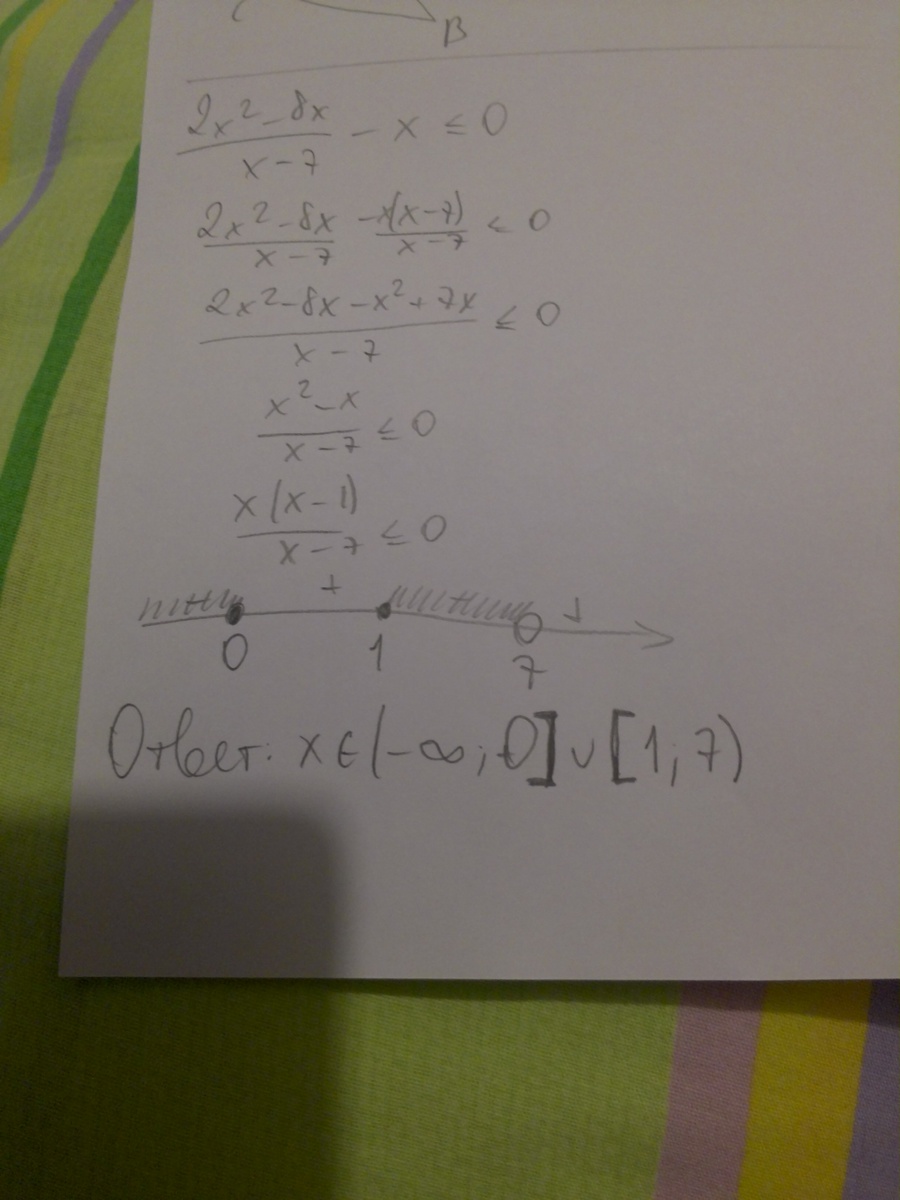 B
(2x² - 8x)/(x - 7) - x ≤ 0
(2x² - 8x)/(x - 7) - x(x - 7)/(x - 7) ≤ 0
(2x² - 8x - x² + 7x)/(x - 7) ≤ 0
(x² - x)/(x - 7) ≤ 0
x(x - 1)/(x - 7) ≤ 0
+ +
0 1 7
Ответ: x ∈ (-∞; 0] ∪ [1; 7)